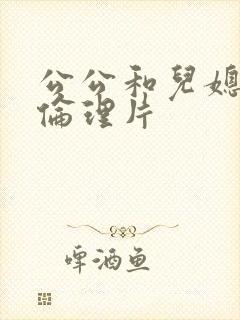 公公和兒媳
倫理片
啤酒鱼